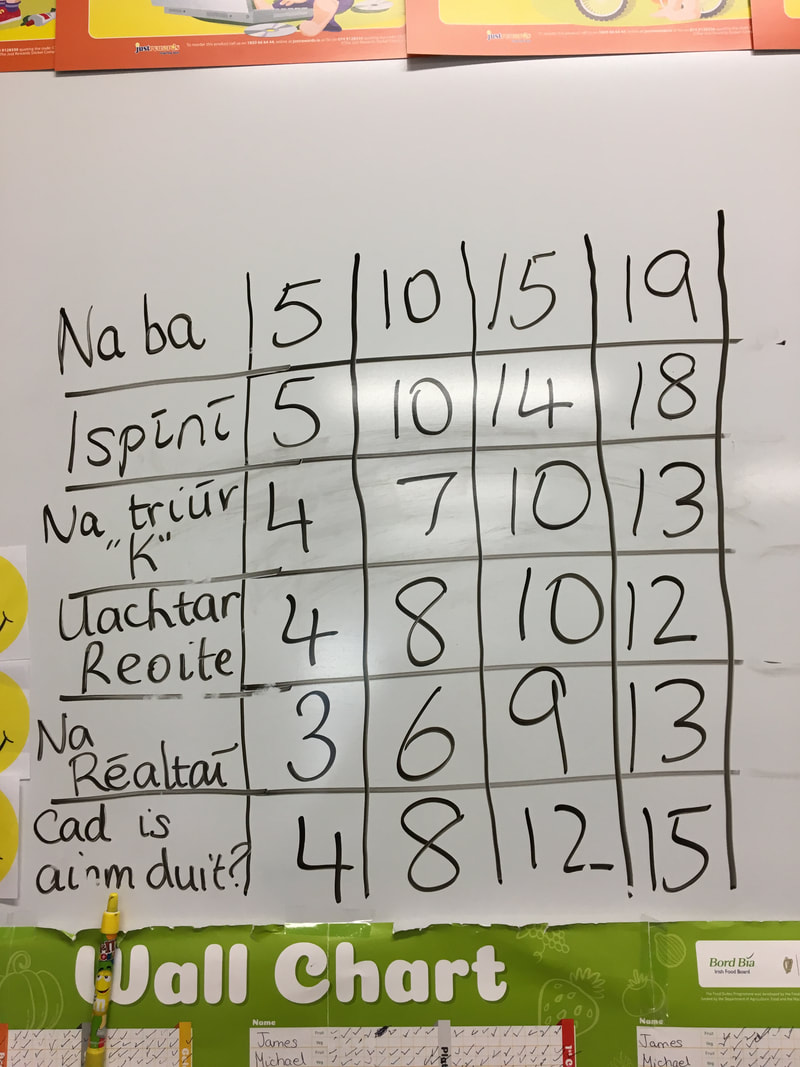 Na ba 5 10 15 19
Ispīnī 5 10 14 18
Na triūr 4 7 10 13
"K"
Uachtar 4 8 10 12
Reoite
Na 3 6 9 13
Rēaltaī
Cad is 4 8 12 15
ainm duit?
Wall Chart
Bord Bia
Irish Food Board
Name
James
Michael
Name
James
Michael